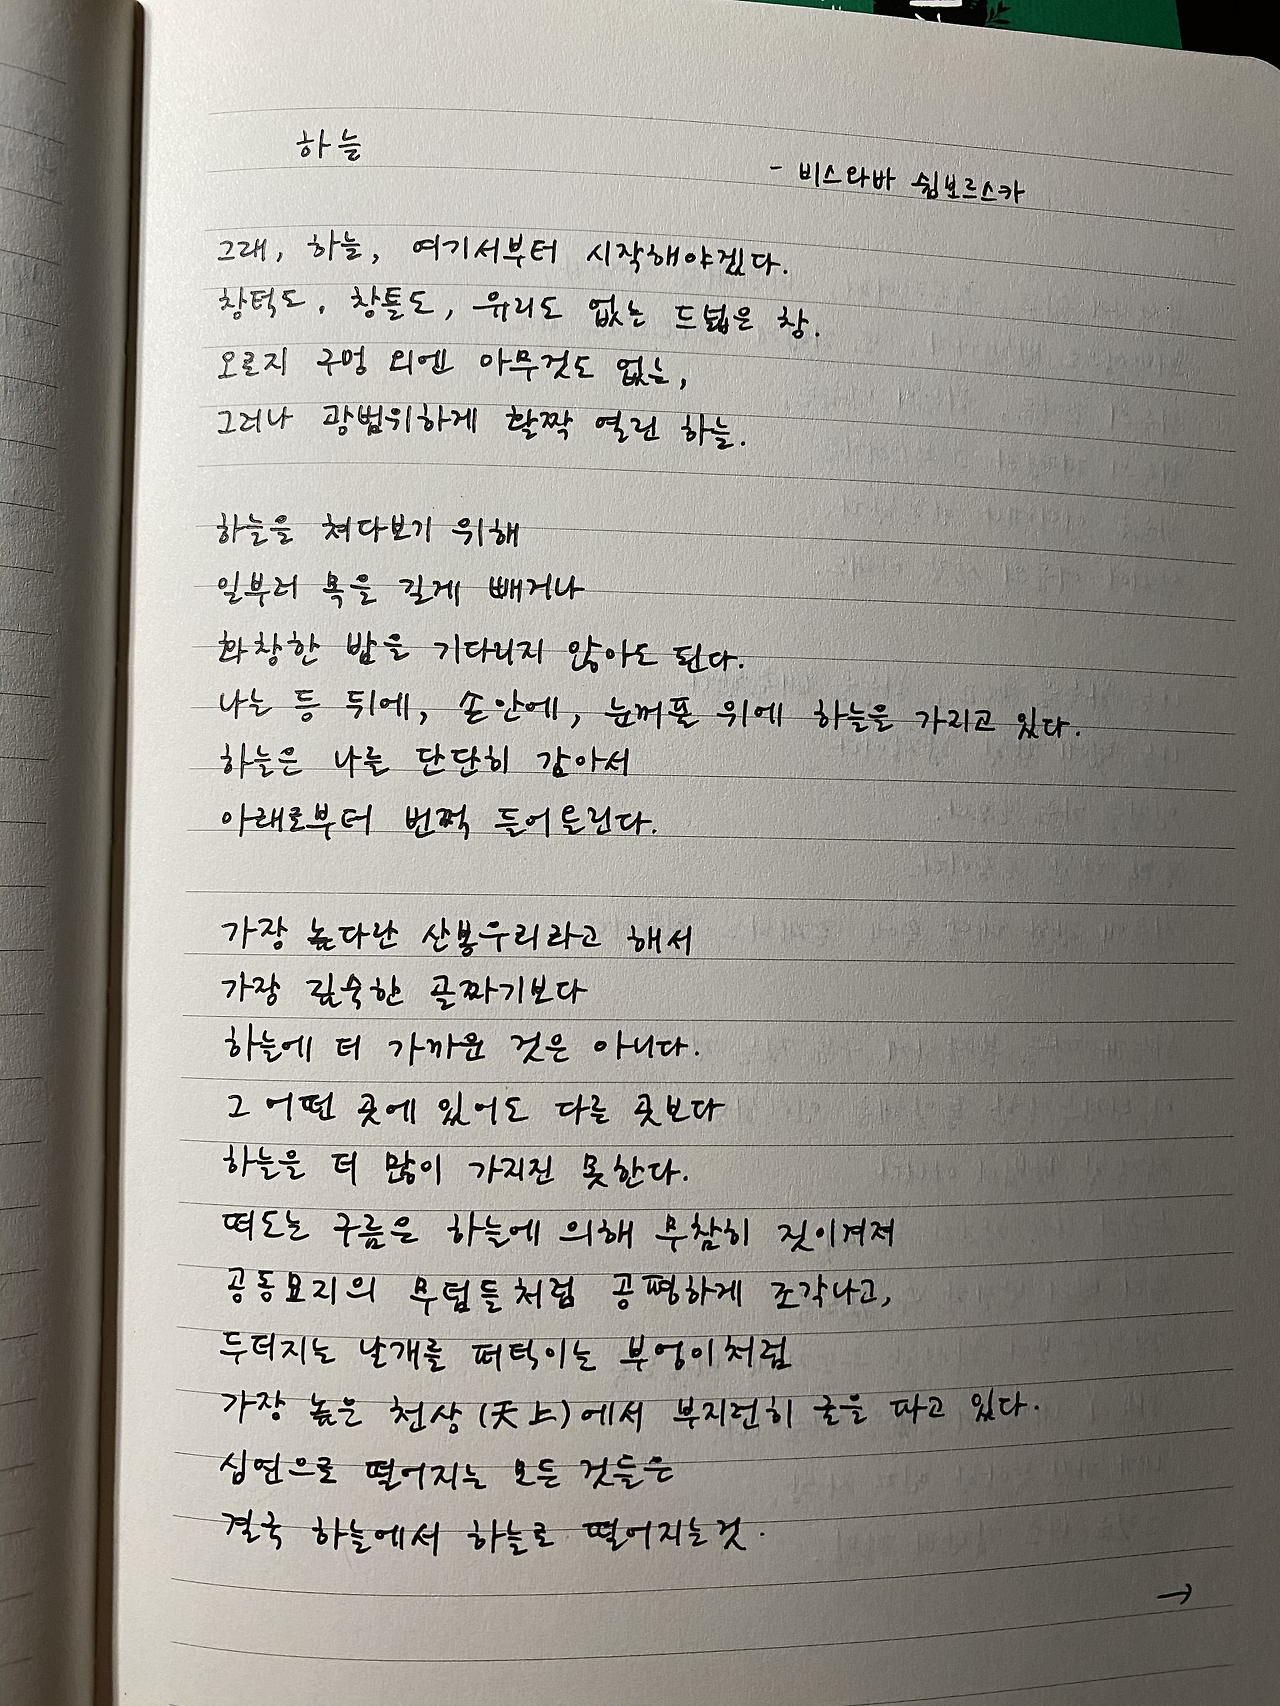 하늘
- 비스와바 쉼보르스카
그래, 하늘, 여기서부터 시작해야겠다.
창턱도, 창틀도, 유리도 없는 드넓은 창.
오로지 구멍 외엔 아무것도 없는,
그러나 광범위하게 활짝 열린 하늘.
하늘을 쳐다보기 위해
일부러 목을 길게 빼거나
화창한 밤을 기다리지 않아도 된다.
나는 등 뒤에, 손 안에, 눈꺼풀 위에 하늘을 가지고 있다.
하늘은 나를 단단히 감아서
아래로부터 번쩍 들어올린다.
가장 높다란 산봉우리라고 해서
가장 깊숙한 골짜기보다
하늘에 더 가까운 것은 아니다.
그 어떤 곳에 있어도 다른 곳보다
하늘을 더 많이 가지진 못한다.
떠도는 구름은 하늘에 의해 무참히 짓이겨져
공동묘지의 무덤들처럼 공평하게 조각나고,
두더지는 날개를 퍼덕이는 부엉이처럼
가장 높은 천상(天上)에서 부지런히 굴을 파고 있다.
심연으로 떨어지는 모든 것들은
결국 하늘에서 하늘로 떨어지는것.
→